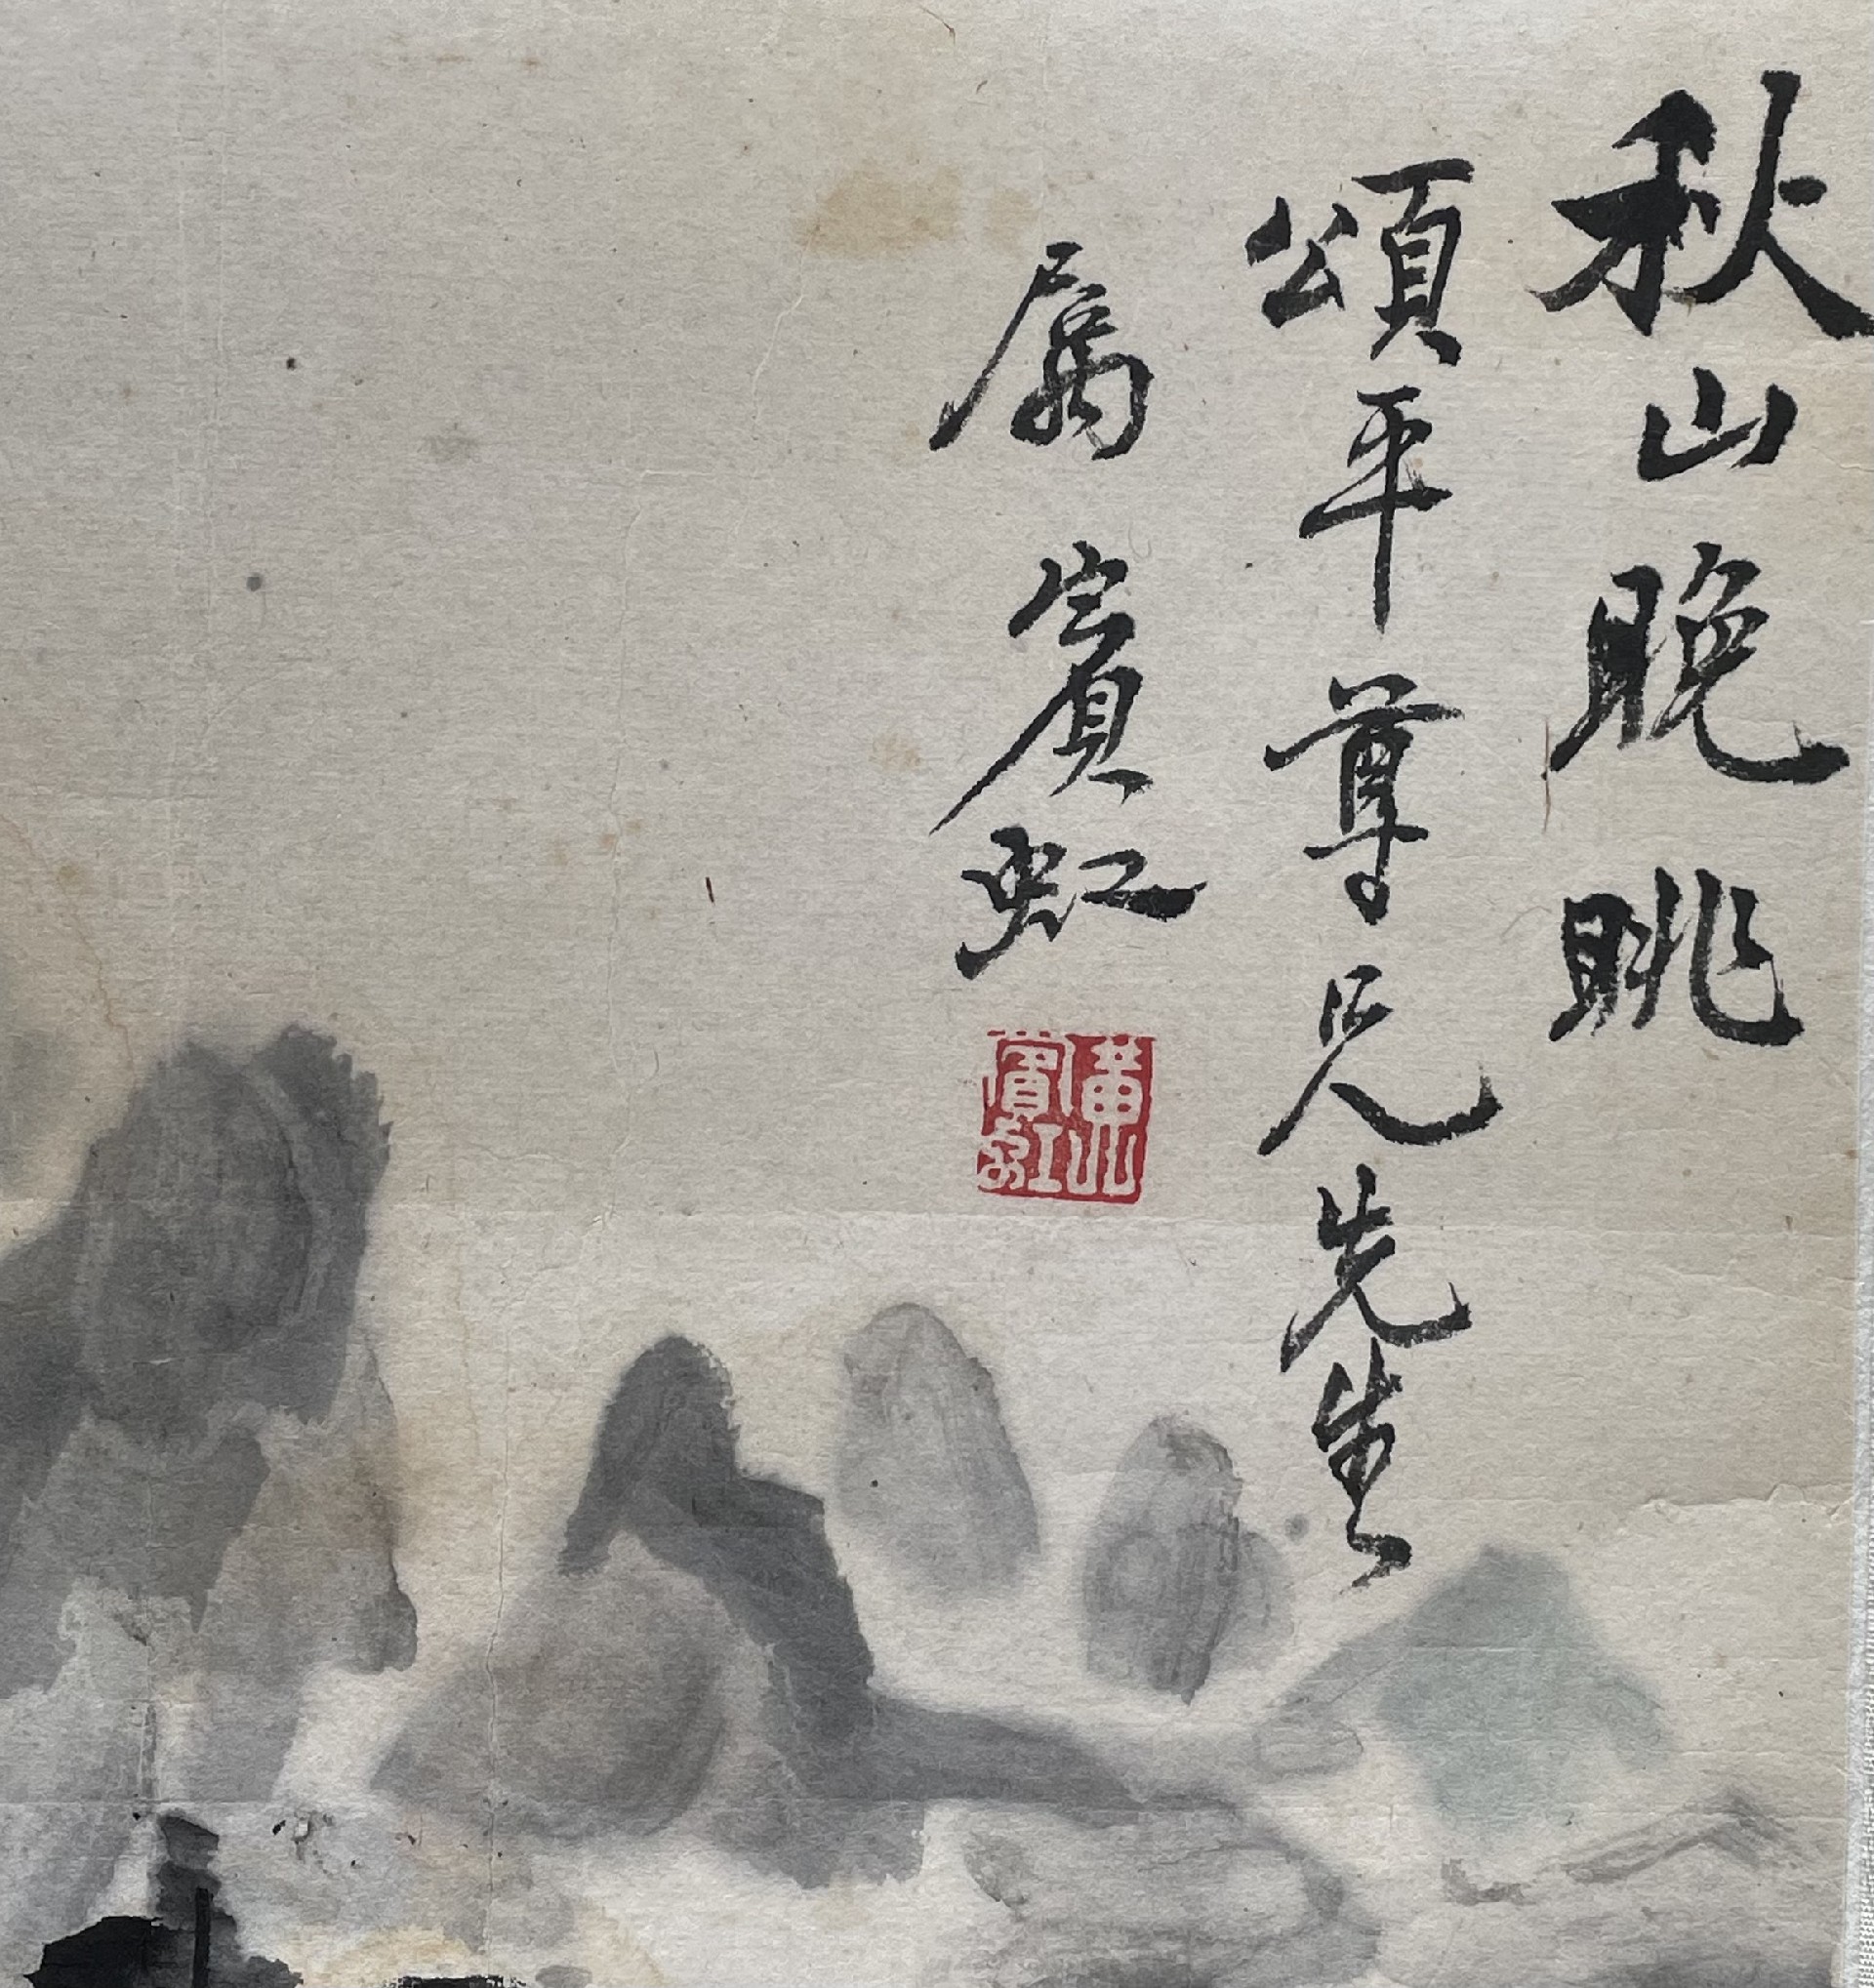 秋山晚眺
頌平尊兄先生
属 賓虹
黃山賓虹